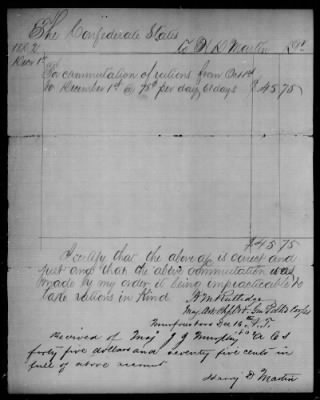 The Confederate States
1862 To H D Martin Dr
Decr 1st
For commutation of rations from Oct 1st
to December 1st @ 75¢ per day, 61 days $45 75
$45.75
I certify that the above a/c is correct and
just and that the above commutation was
made by my order it being impracticable to
take rations in kind
Murfreesboro Dec 16
Received of Maj J J Murphy A C S
forty five dollars and seventy five cents in
full of above account
D Martin